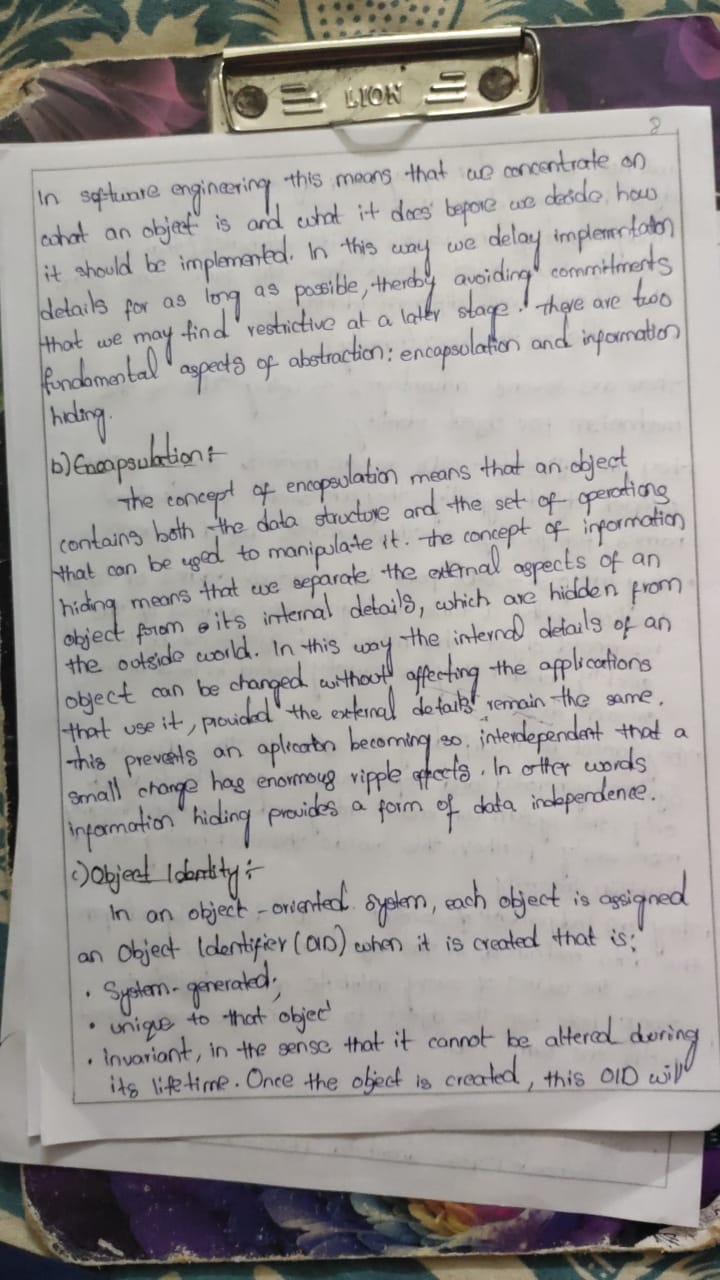 LION
8
In software engineering this means that we concentrate on
what an object is and what it does before we decide how
it should be implemented. In this way we delay implementation
details for as long as possible, thereby avoiding commitments
that we may find restrictive at a later stage. There are two
fundamental aspects of abstraction: encapsulation and information
hiding.
b) Encapsulation:-
The concept of encapsulation means that an object
contains both the data structure and the set of operations
that can be used to manipulate it. The concept of information
hiding means that we separate the external aspects of an
object from its internal details, which are hidden from
the outside world. In this way the internal details of an
object can be changed without affecting the applications
that use it, provided the external details remain the same.
this prevents an aplication becoming so interdependent that a
small change has enormous ripple effects. In other words
information hiding provides a form of data independence.
c) Object Identity:-
In an object-oriented system, each object is assigned
an Object Identifier (OID) when it is created that is:
• System-generated;
• unique to that object
• invariant, in the sense that it cannot be altered during
its lifetime. Once the object is created, this OID will